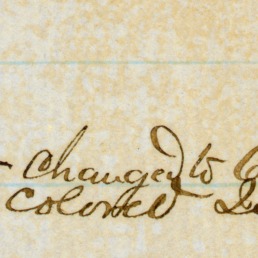 changed to
Colored